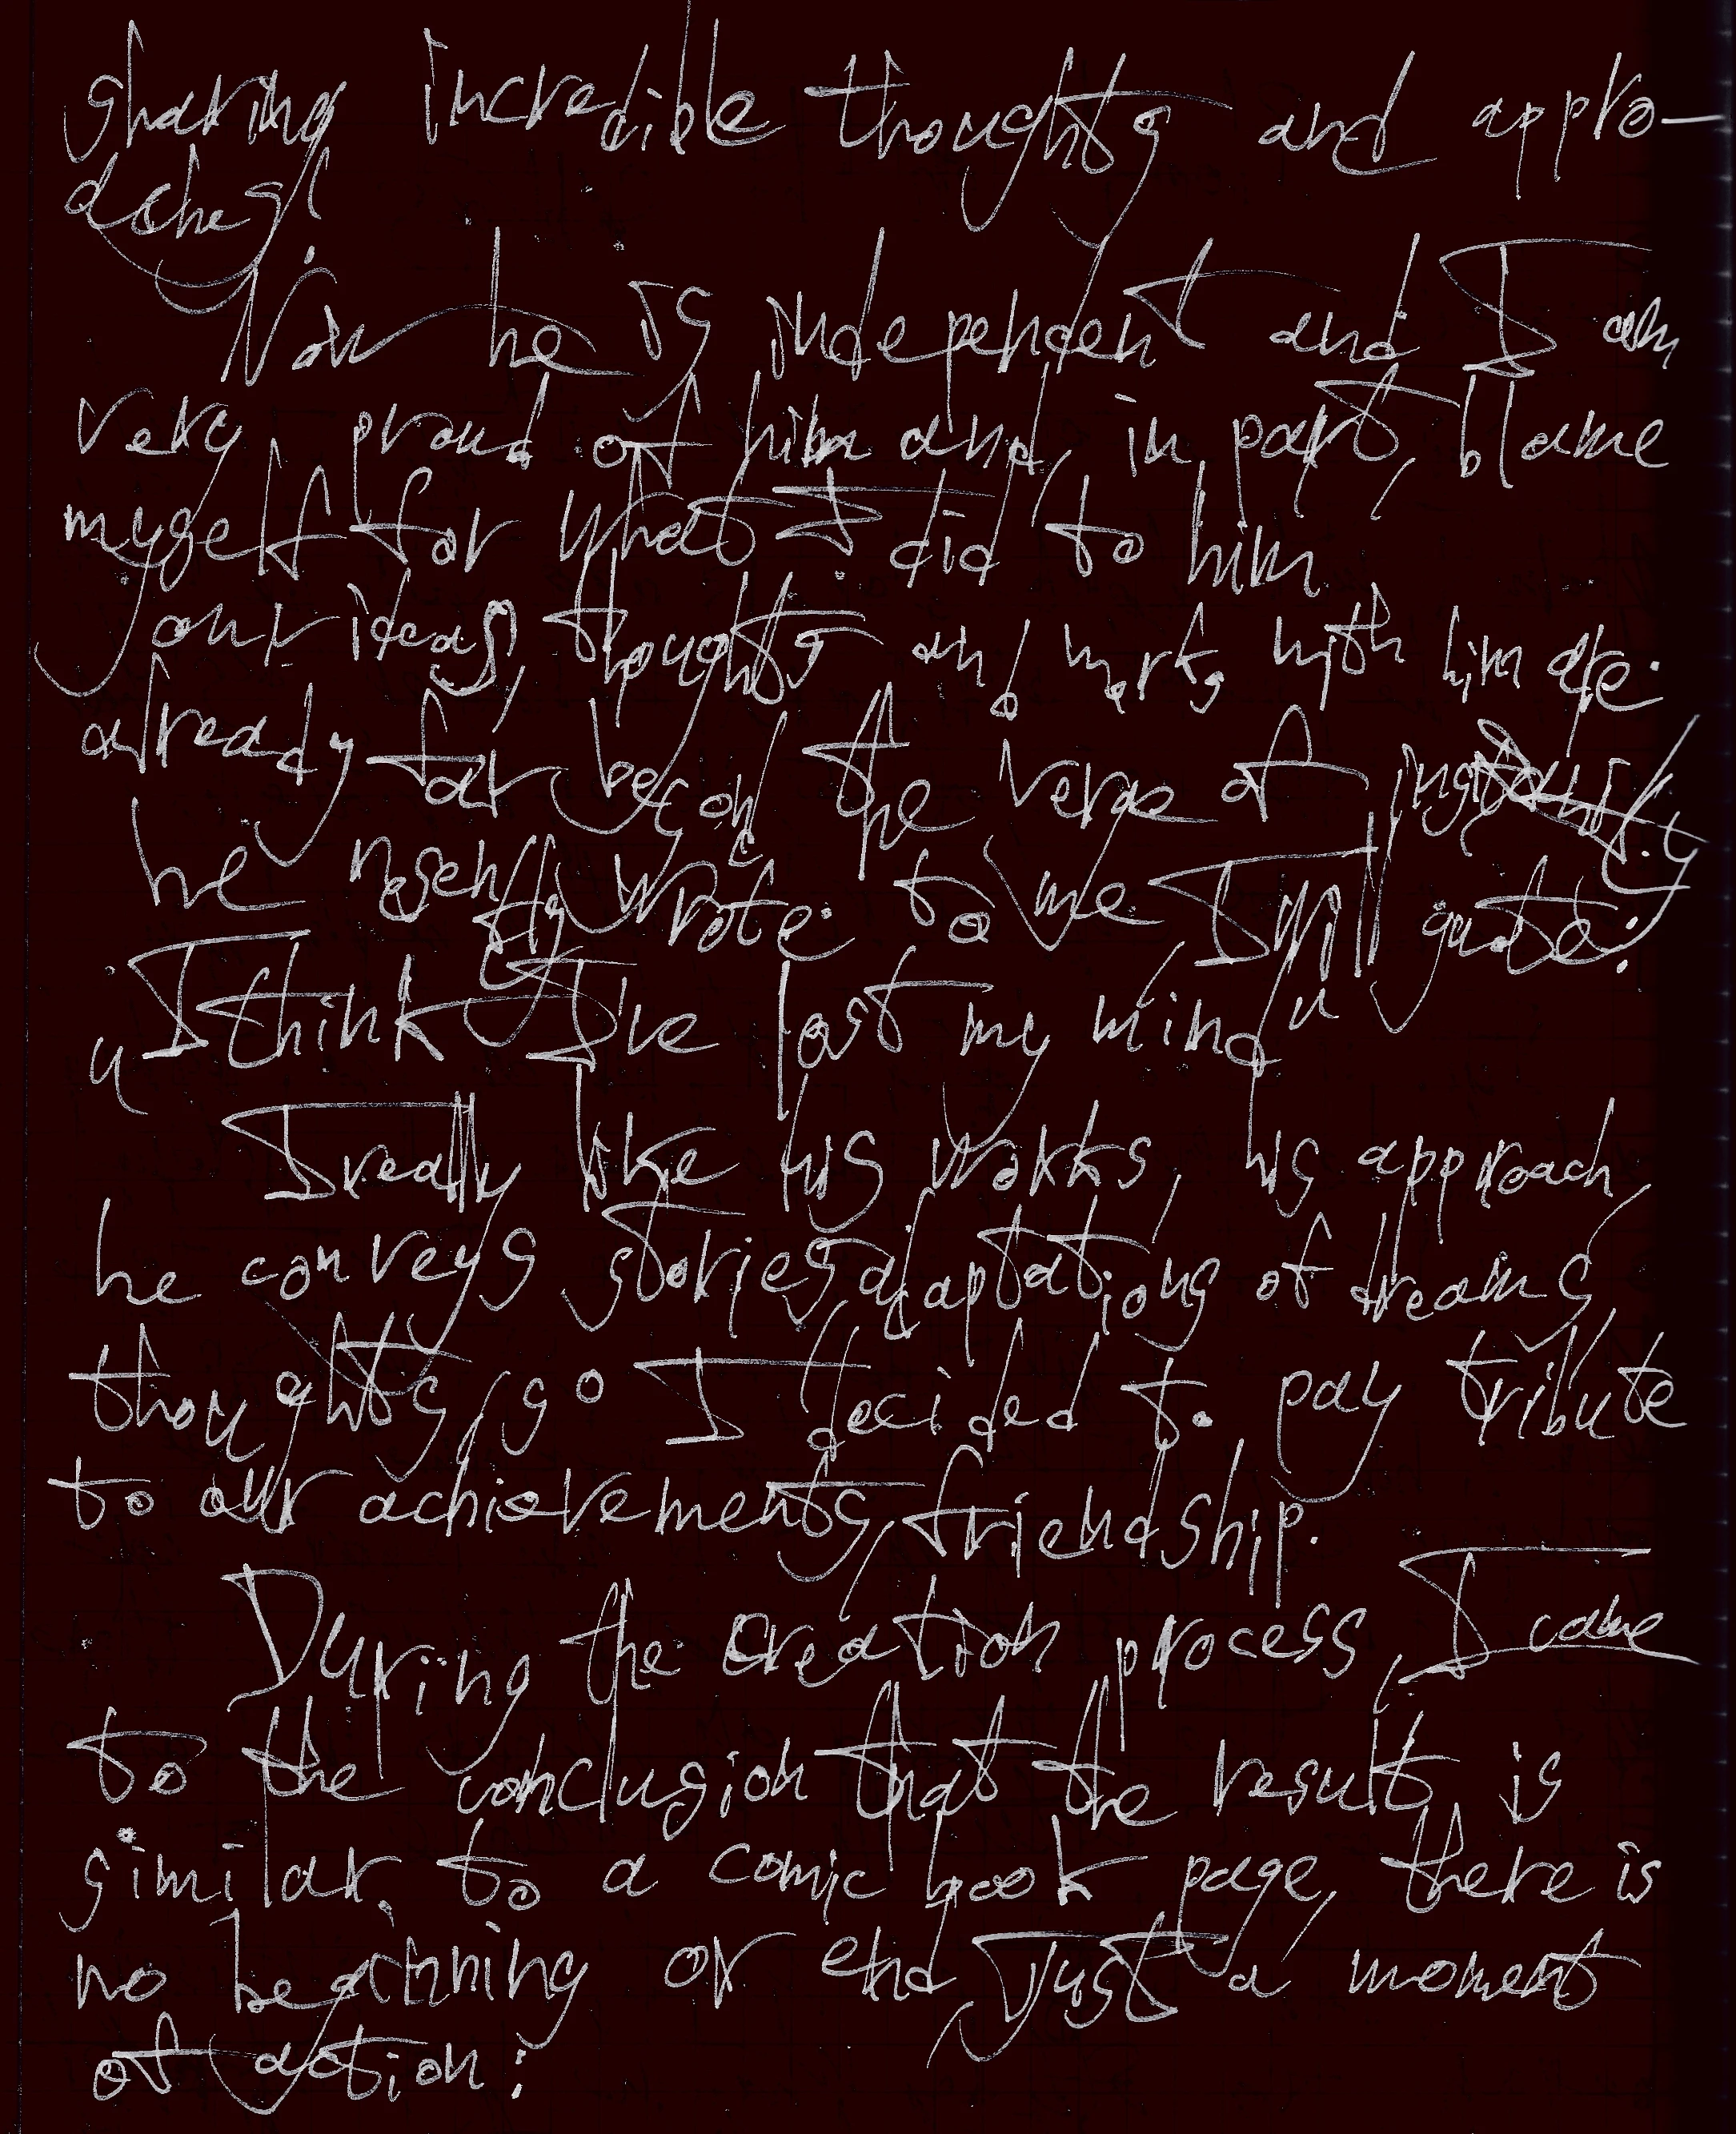 sharing incredible thoughts and appro-
aches!
Now he is independent and I am
very proud of him and, in part, blame
myself for what I did to him.
our ideas, thoughts and works with him are
already far beyond the verge of
he recently wrote to me, I will quote:
"I think I've lost my mind"
I really like his works, his approach,
he conveys stories, adaptations of dreams,
thoughts, so I decided to pay tribute
to our achievements, friendship.
During the creation process, I came
to the conclusion that the result is
similar to a comic book page, there is
no beginning or end, just a moment
of action: